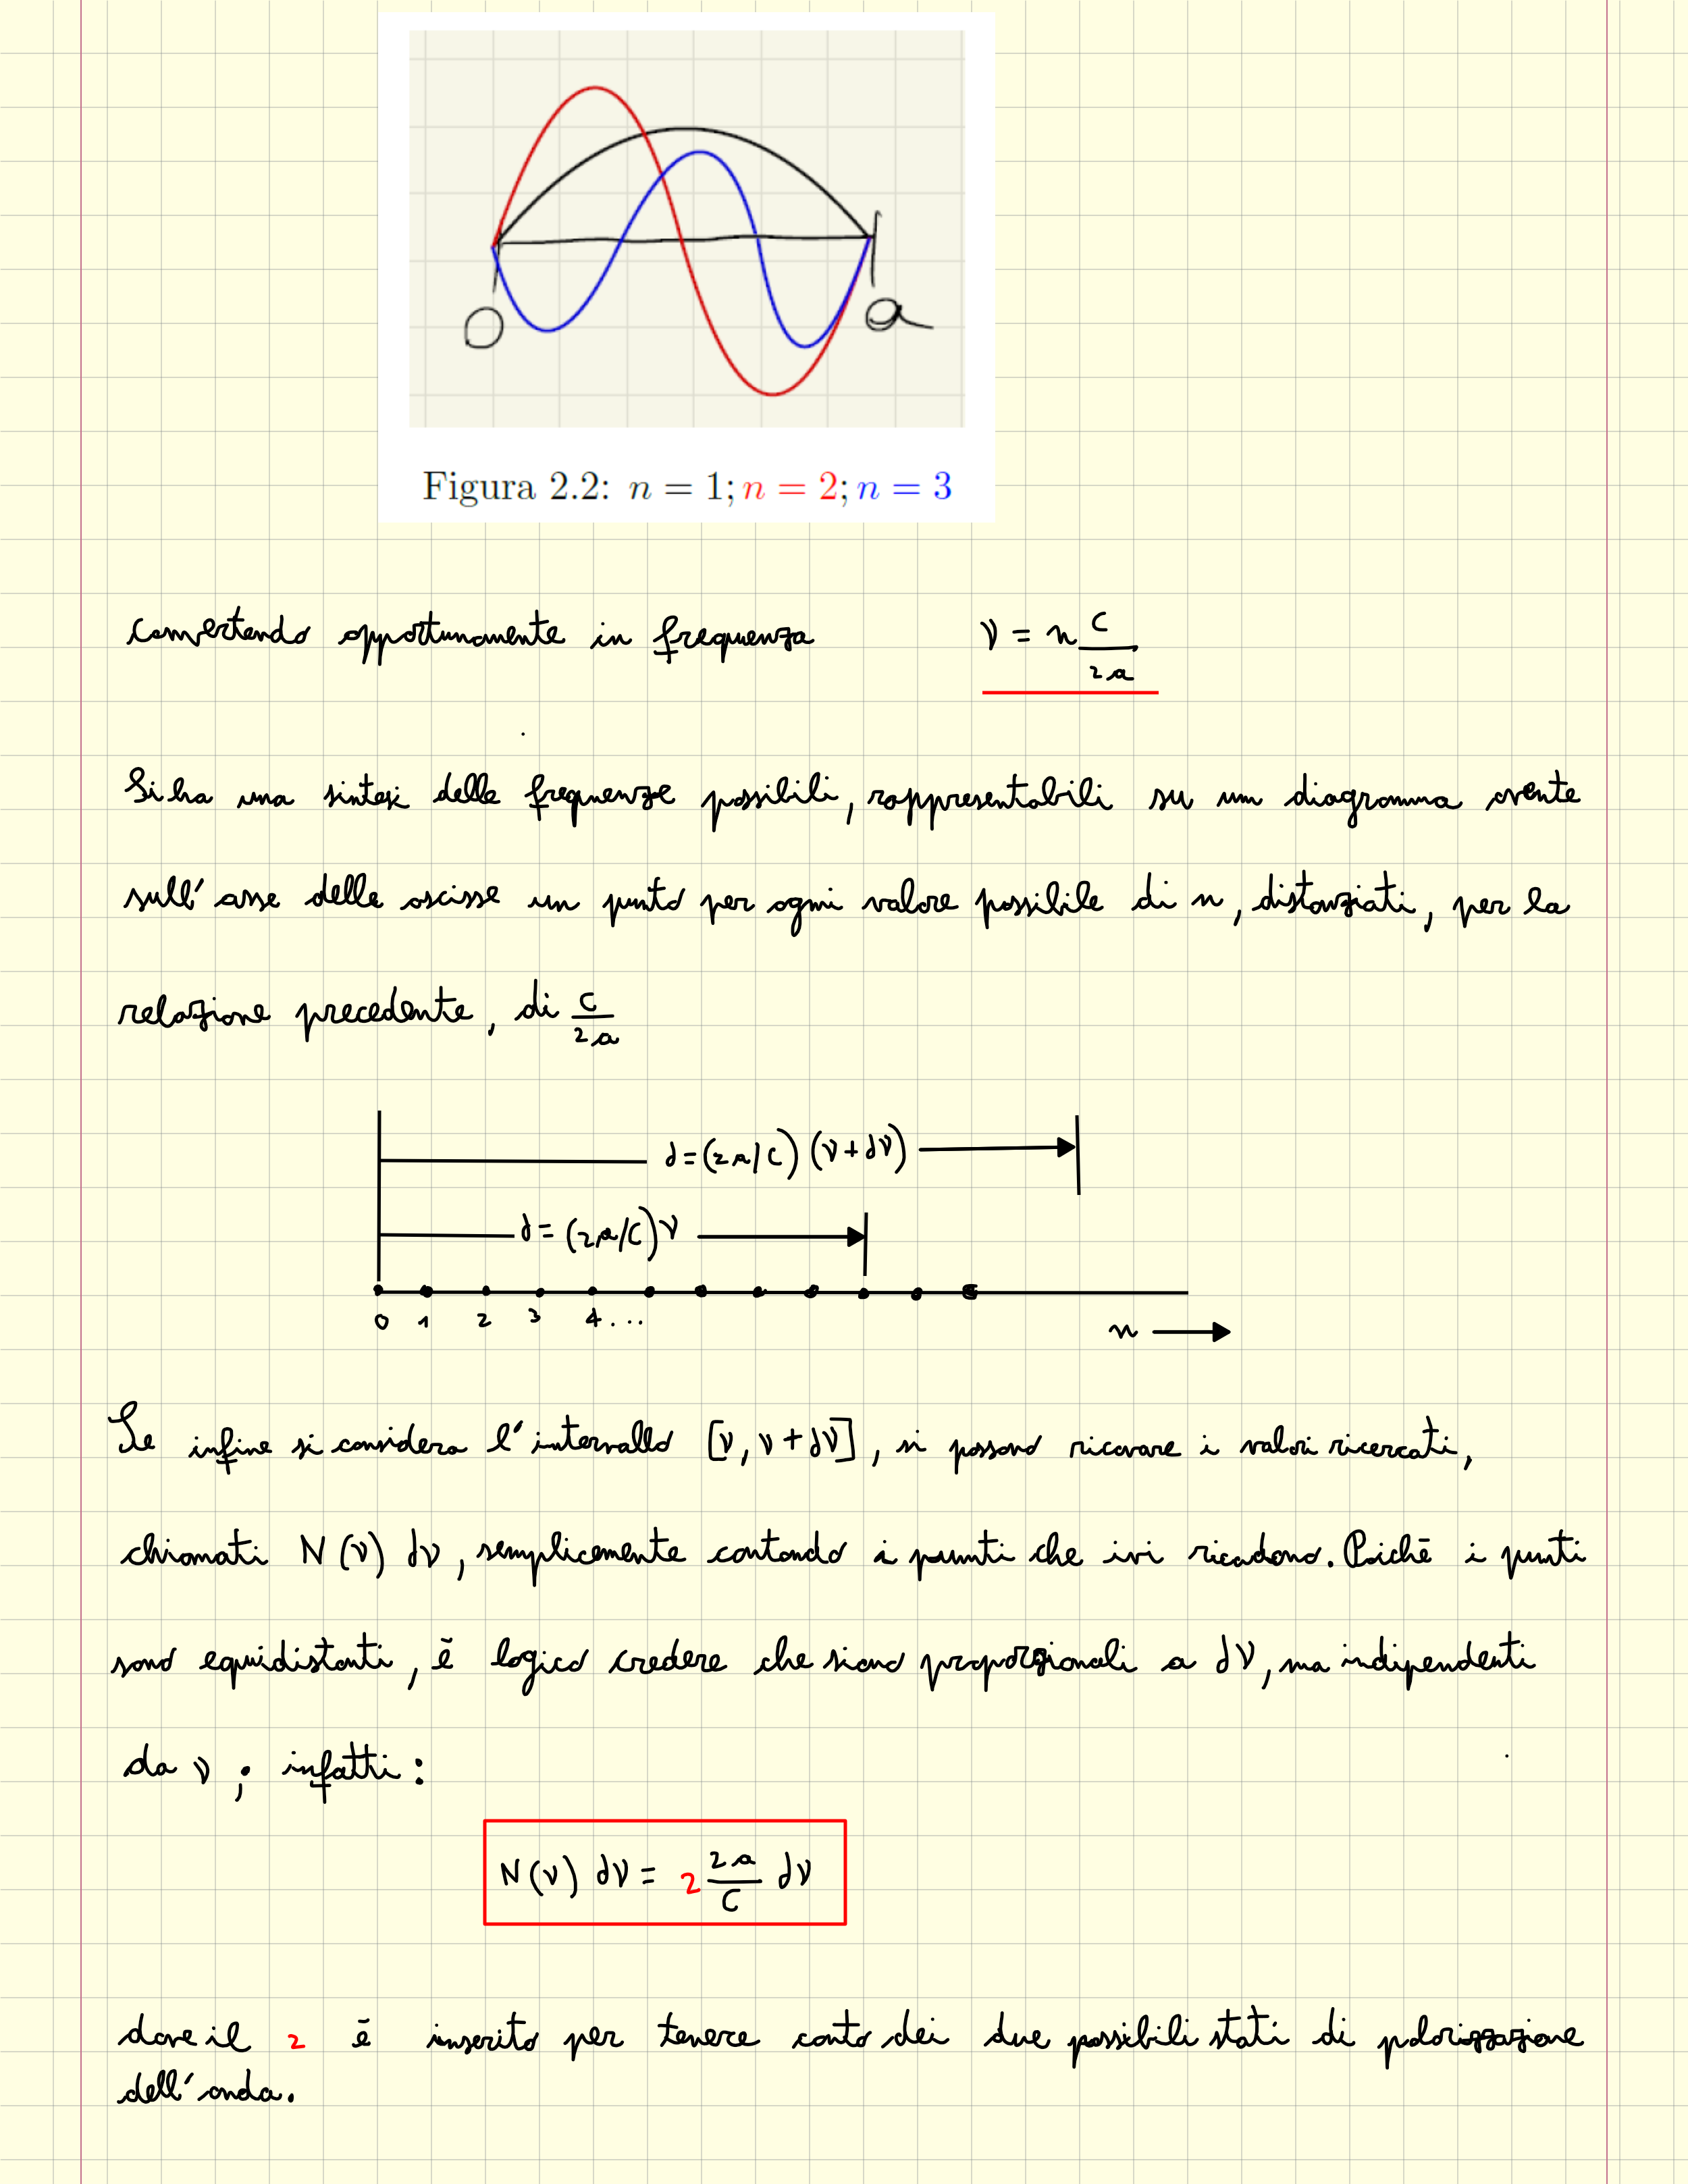 O a
Figura 2.2: n = 1; n = 2; n = 3
convertendo opportunamente in frequenza ν = n c/2a
Si ha una sintesi delle frequenze possibili, rappresentabili su un diagramma avente
sull'asse delle ascisse un punto per ogni valore possibile di n, distanziati, per la
relazione precedente, di c/2a
d = (2a/c) (ν + dν)
d = (2a/c) ν
0 1 2 3 4 ...
n
Se infine si considera l'intervallo [ν, ν + dν], si possono ricavare i valori ricercati,
chiamati N(ν) dν, semplicemente contando i punti che ivi ricadono. Poichè i punti
sono equidistanti, è logico credere che siano proporzionali a dν, ma indipendenti
da ν ; infatti:
N(ν) dν = 2 2a/c dν
dove il 2 è inserito per tenere conto dei due possibili stati di polarizzazione
dell'onda.